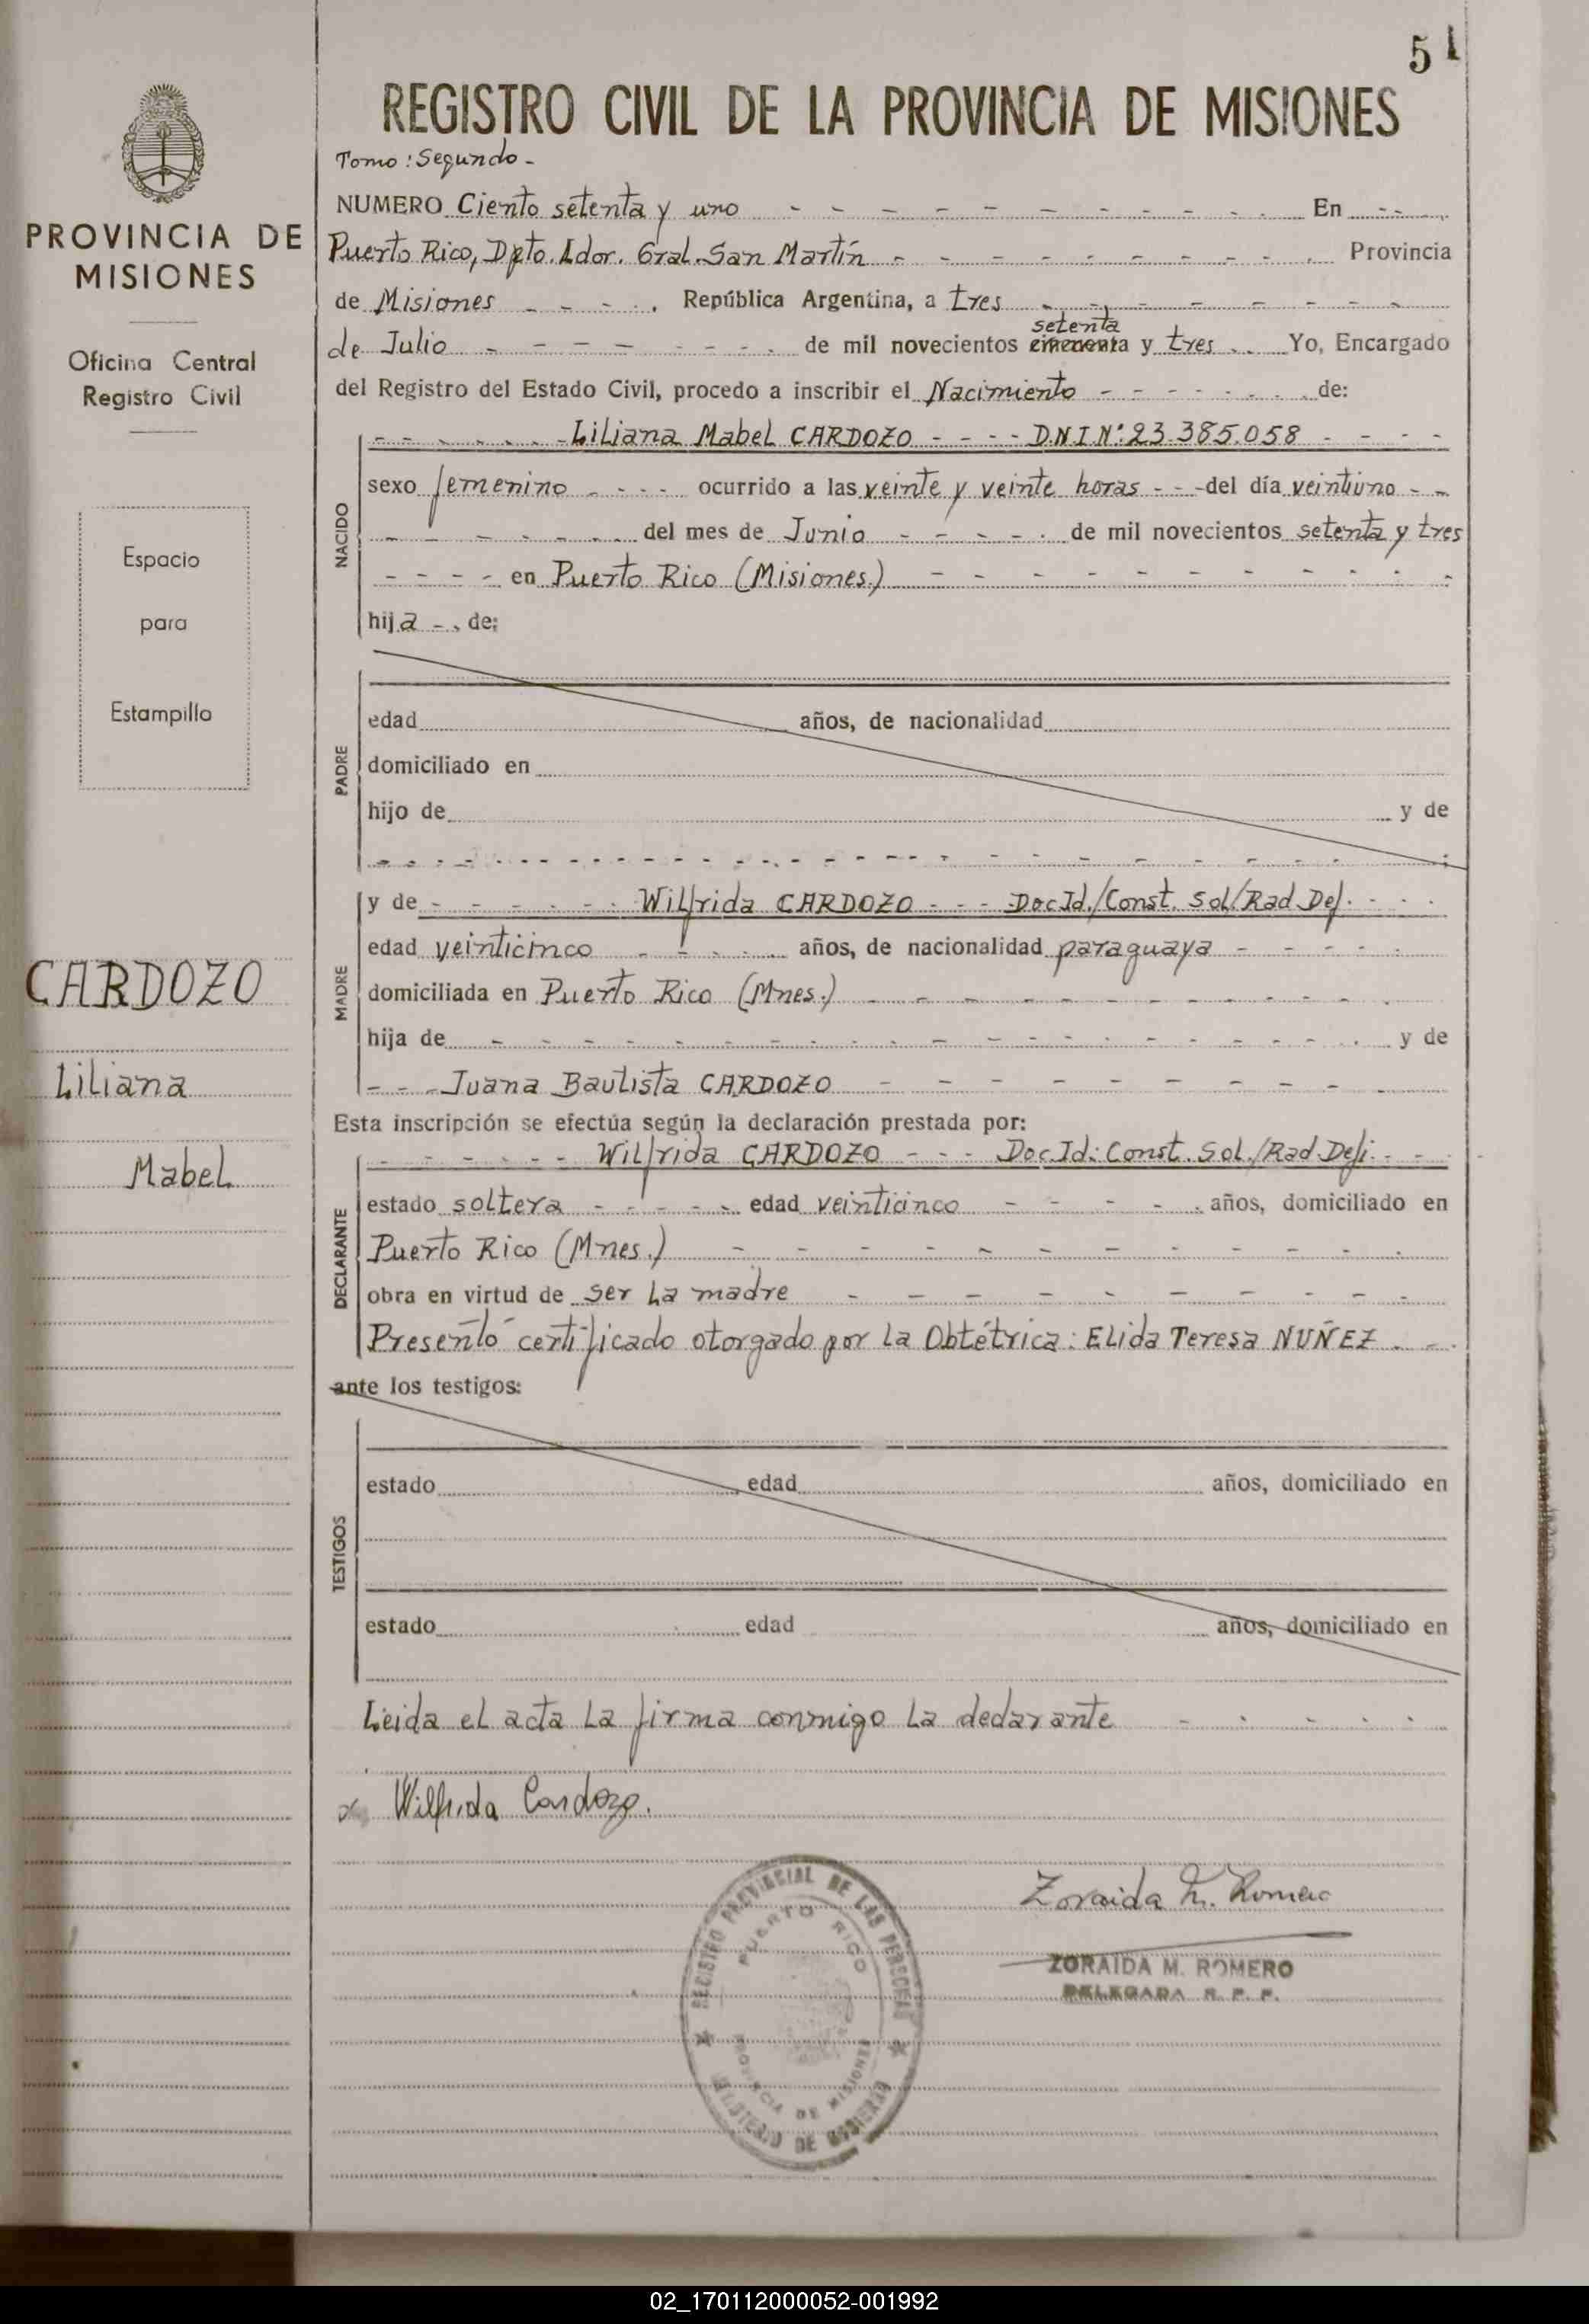 51
REGISTRO CIVIL DE LA PROVINCIA DE MISIONES
Tomo: Segundo -
PROVINCIA DE
MISIONES
Oficina Central
Registro Civil
Espacio
para
Estampilla
CARDOZO
Liliana
Mabel
NUMERO Ciento setenta y uno En
Puerto Rico, Dpto. Ldor. Gral. San Martín Provincia
de Misiones República Argentina, a tres
setenta
de Julio de mil novecientos cincuenta y tres Yo, Encargado
del Registro del Estado Civil, procedo a inscribir el Nacimiento de:
NACIDO
Liliana Mabel CARDOZO - - - - D.N.I.Nº:23.385.058
sexo femenino ocurrido a las veinte y veinte horas del día veintiuno
del mes de Junio de mil novecientos setenta y tres
en Puerto Rico (Misiones.)
hija de:
PADRE
edad años, de nacionalidad
domiciliado en
hijo de y de
MADRE
y de Wilfrida CARDOZO - - - Doc Id./Const. Sol/Rad Def.
edad veinticinco años, de nacionalidad paraguaya
domiciliada en Puerto Rico (Mnes.)
hija de y de
Juana Bautista CARDOZO
Esta inscripción se efectúa según la declaración prestada por:
DECLARANTE
Wilfrida CARDOZO - - - Doc Id: Const. Sol./Rad Defi.
estado soltera edad veinticinco años, domiciliado en
Puerto Rico (Mnes.)
obra en virtud de ser La madre
Presentó certificado otorgado por la Obtétrica: Elida Teresa NUÑEZ
ante los testigos:
TESTIGOS
estado edad años, domiciliado en
estado edad años, domiciliado en
Leida el acta La firma conmigo La declarante
x Wilfrida Cardozo.
REGISTRO PROVINCIAL DE LAS PERSONAS
PUERTO RICO
PROVINCIA DE MISIONES
MINISTERIO DE GOBIERNO
Zoraida M. Romero
ZORAIDA M. ROMERO
DELEGADA R. P. P.
02_170112000052-001992